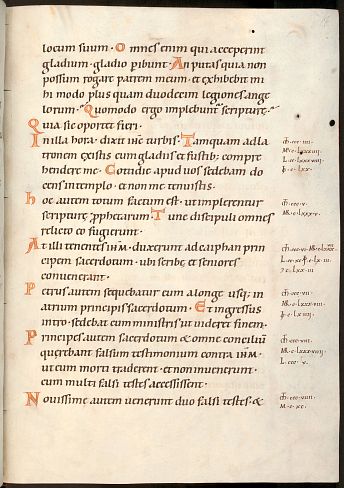 locum suum · Omnes enim qui acceperint
gladium · gladio peribunt · An putas quia non
possum rogare patrem meum · et exhibebit mi
hi modo plus quam duodecim legiones ange
lorum · Quomodo ergo implebunt̃ scripturę ·
Quia sic oportet fieri ·
In illa hora · dixit ihc̄ turbis · Tamquam ad la
tronem existis cum gladiis et fustib; compre
hendere me · Cottidie apud uos sedebam do
cens in templo · et non me tenuistis ·
hoc autem totum factum est · ut implerentur
scripturę prophetarum · Tunc discipuli omnes
relicto eo fugerunt ·
At illi tenentes ihm̄ · duxerunt ad caiphan prin
cipem sacerdotum · ubi scribę et seniores
conuenerant ·
Petrus autem sequebatur eum a longe · usq; in
atrium principis sacerdotum · Et ingressus
intro · sedebat cum ministris ut uideret finem ·
Principes autem sacerdotum & omne conciliũ
querebant falsum testimonium contra ihm̄ ·
ut eum morti traderent · et non inuenerunt ·
cum multi falsi testes accessissent ·
Nouissime autem uenerunt duo falsi testes · &